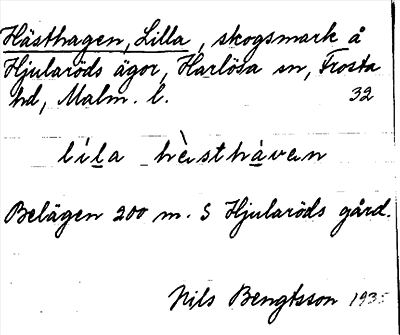 Hästhagen, Lilla, skogsmark å
Hjularöds ägor, Harlösa sn, Frosta
hd, Malm. l. 32
líla hὲsthàvan
Belägen 200 m. S Hjularöds gård.
Nils Bengtsson